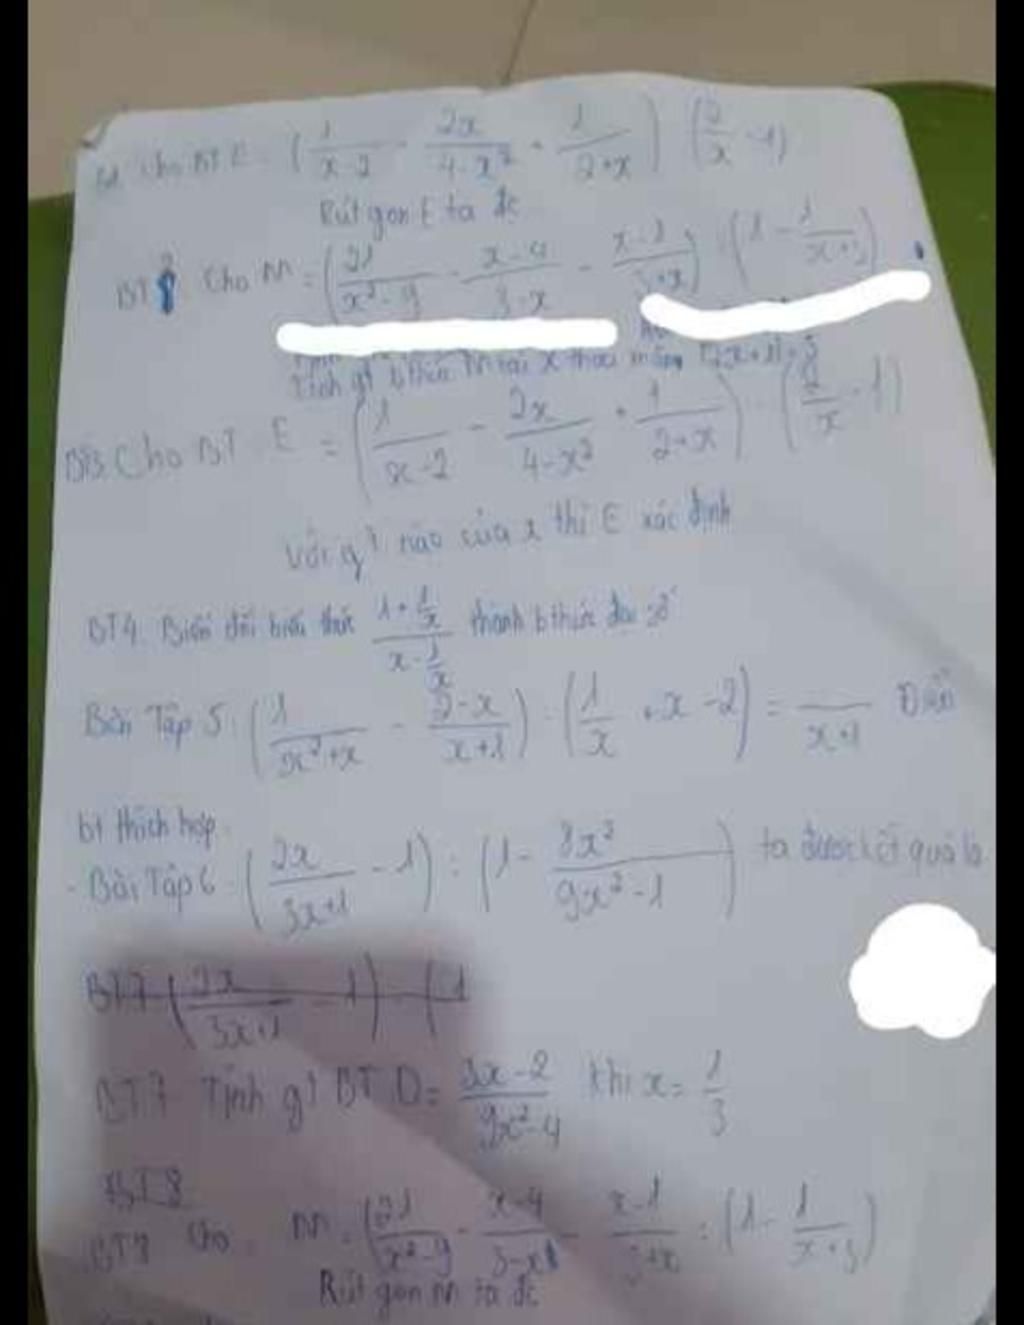 Cho BT E = (1/(x-2) - 2x/(4-x²) + 1/(2+x)) (2/x - 1)
Rút gọn E ta đc
BT Cho M = (21/(x²-9) - (x-4)/(3-x) - (x-1)/(3+x)) : (1 - 1/(x+3))
Tính gt b thức M tại x thỏa mãn
BT3. Cho BT E = (1/(x-2) - 2x/(4-x²) + 1/(2+x)) · (2/x - 1)
Với gt nào của x thì E xác định
BT4. Biến đổi biểu thức (1+1/x)/(x-1/x) thành b thức đại số
Bài Tập 5: (1/(x²+x) - (2-x)/(x+1)) : (1/x + x - 2) = /(x+1) Điền
bt thích hợp
- Bài Tập 6: (2x/(3x+1) - 1) : (1 - 8x²/(9x²-1)) ta được kết quả là
BT7 (2x/(3x+1) - 1) (1
BT7 Tính gt BT D = (3x-2)/(9x²-4) khi x = 1/3
BT8
BT8 Cho M = (21/(x²-9) - (x-4)/(3-x) - (x-1)/(3+x) : (1 - 1/(x+3))
Rút gọn M ta đc